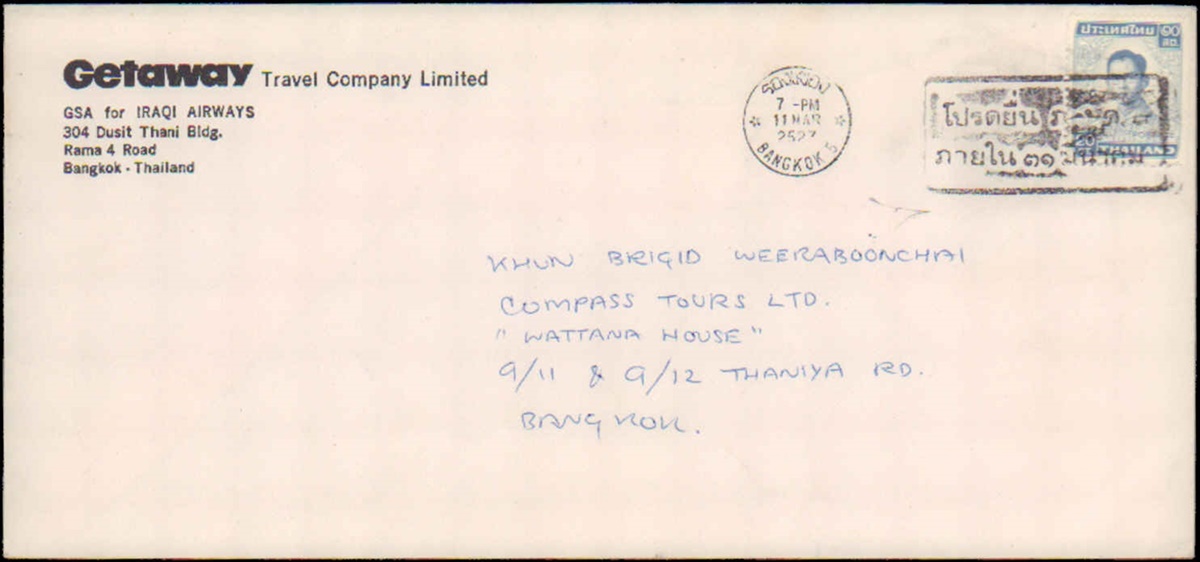 Getaway Travel Company Limited
GSA for IRAQI AIRWAYS
304 Dusit Thani Bldg.
Rama 4 Road
Bangkok - Thailand
7 -PM
11 MAR
2527
BANGKOK 5
ประเทศไทย ๒๐
20 THAILAND
โปรดยื่น
ภายใน ๓๑ มีนาคม
KHUN BRIGID WEERABOONCHAI
COMPASS TOURS LTD.
"WATTANA HOUSE"
9/11 & 9/12 THANIYA RD.
BANGKOK.